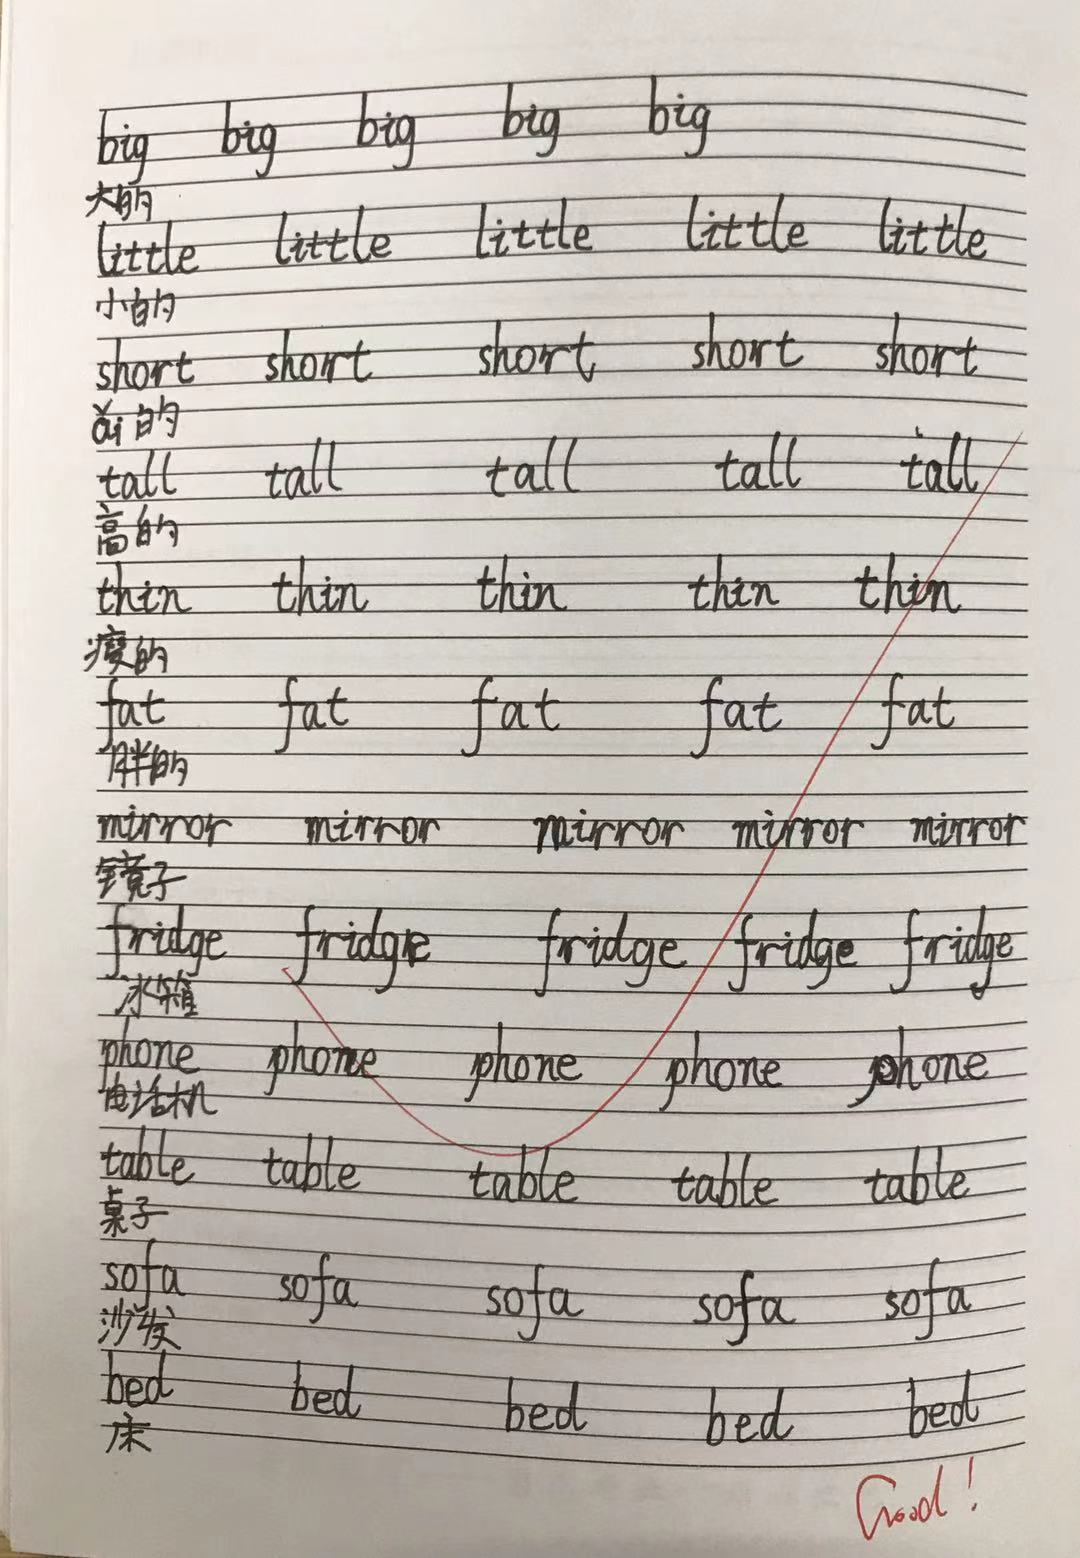 big big big big big
大的
little little little little little
小的
short short short short short
ǎi的
tall tall tall tall tall
高的
thin thin thin thin thin
瘦的
fat fat fat fat fat
胖的
mirror mirror mirror mirror mirror
镜子
fridge fridge fridge fridge fridge
冰箱
phone phone phone phone phone
电话机
table table table table table
桌子
sofa sofa sofa sofa sofa
沙发
bed bed bed bed bed
床
Good!